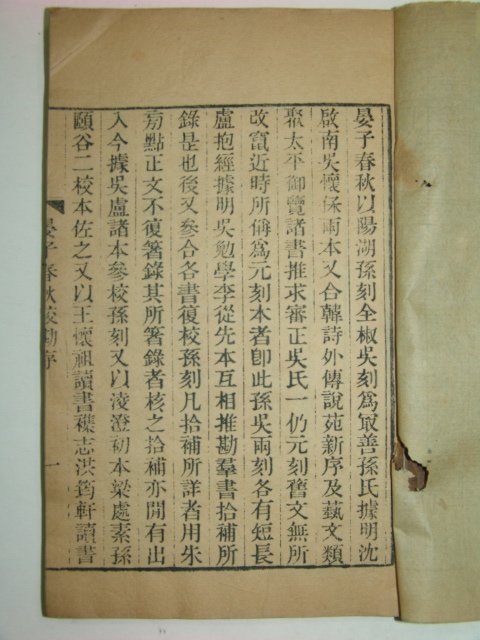 晏子春秋以陽湖孫刻全椒吳刻爲㝡善孫氏據明沈
啟南吳懷保兩本又合韓詩外傳說苑新序及藝文類
聚太平御覽諸書推求審正吳氏一仍元刻舊文無所
改竄近時所偁爲元刻本者卽此孫吳兩刻各有短長
盧抱經據明吳勉學李從先本互相推勘羣書拾補所
錄是也後又參合各書復校孫刻凡拾補所詳者用朱
㫄點正文不復箸錄其所箸錄者核之拾補亦閒有出
入今據吳盧諸本參校孫刻又以淩澄初本梁處素孫
頤谷二校本佐之又以王懷祖讀書襍志洪筠軒讀書
晏子春秋校勘序
一